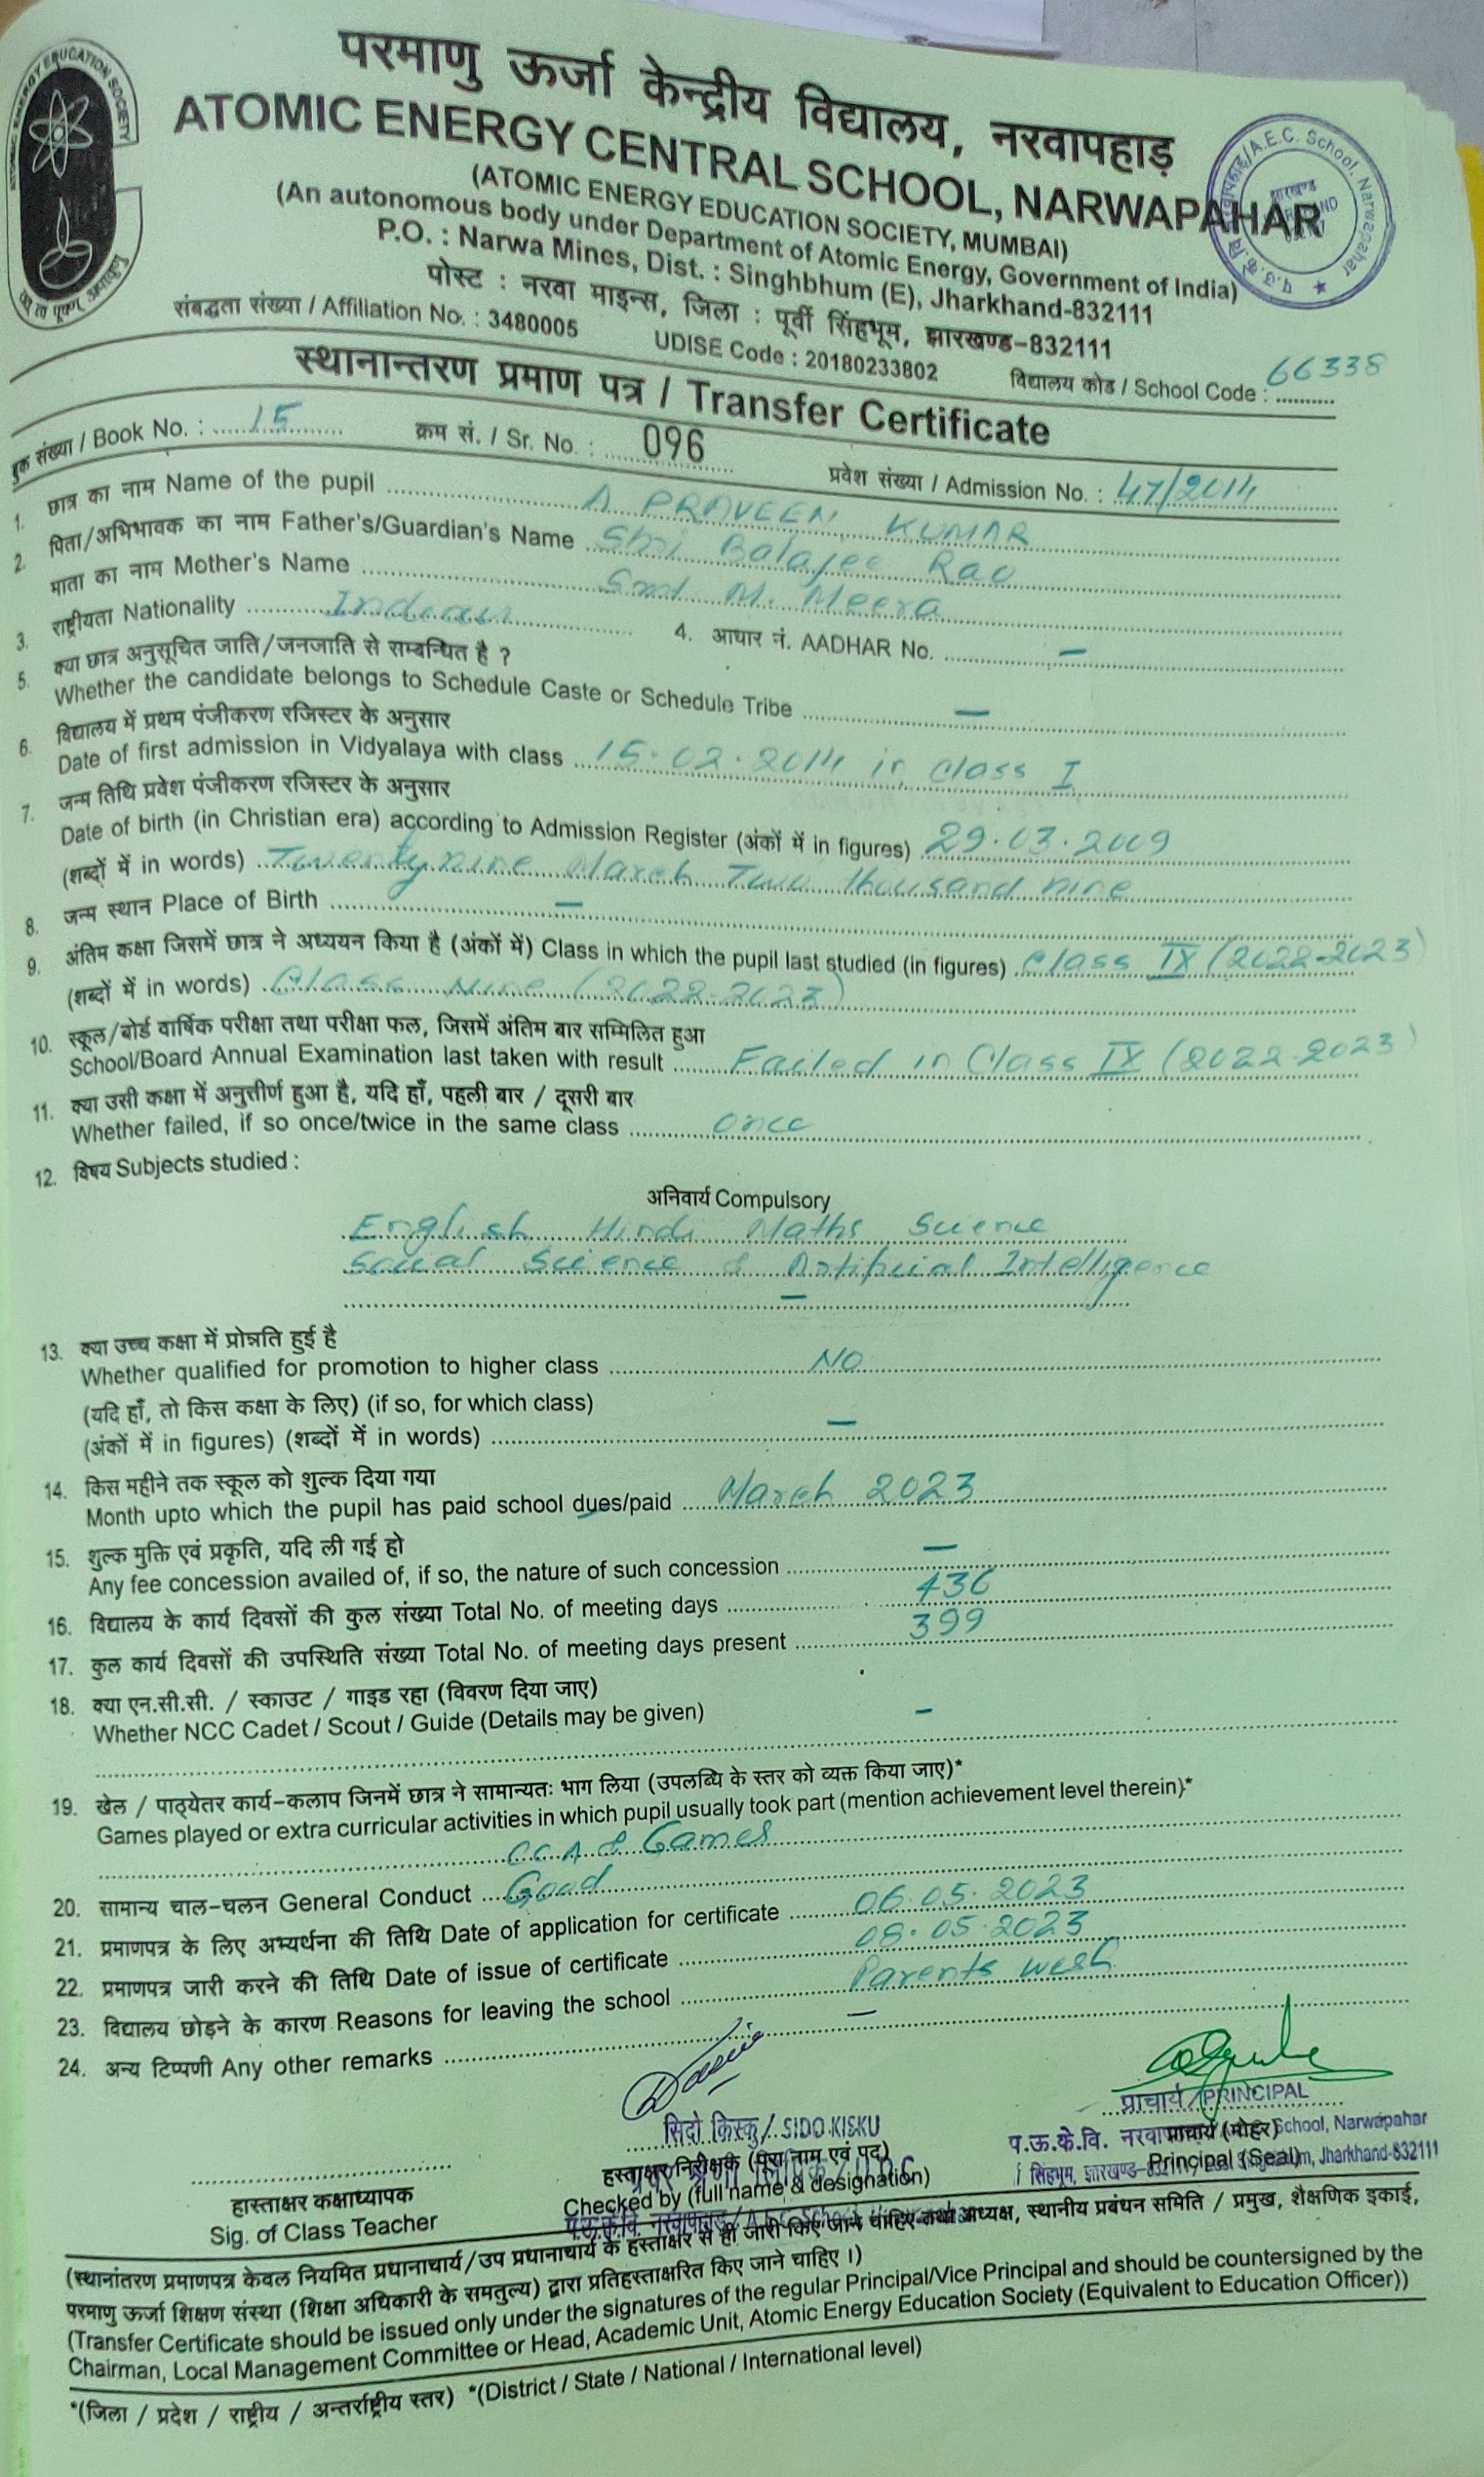 ATOMIC ENERGY EDUCATION SOCIETY
परमाणु ऊर्जा केन्द्रीय विद्यालय, नरवापहाड़
ATOMIC ENERGY CENTRAL SCHOOL, NARWAPAHAR
(ATOMIC ENERGY EDUCATION SOCIETY, MUMBAI)
(An autonomous body under Department of Atomic Energy, Government of India)
P.O. : Narwa Mines, Dist. : Singhbhum (E), Jharkhand-832111
पोस्ट : नरवा माइन्स, जिला : पूर्वी सिंहभूम, झारखण्ड-832111
संबद्धता संख्या / Affiliation No. : 3480005 UDISE Code : 20180233802 विद्यालय कोड / School Code : 66338
प.उ.के.वि. नरवापहाड/A.E.C. School, Narwapahar
झारखण्ड
स्थानान्तरण प्रमाण पत्र / Transfer Certificate
बुक संख्या / Book No. : 15 क्रम सं. / Sr. No. : 096 प्रवेश संख्या / Admission No. : 47/2014
1. छात्र का नाम Name of the pupil A PRAVEEN KUMAR
2. पिता/अभिभावक का नाम Father's/Guardian's Name Shri Balajee Rao
माता का नाम Mother's Name Smt M. Meera
3. राष्ट्रीयता Nationality Indian 4. आधार नं. AADHAR No. –
5. क्या छात्र अनुसूचित जाति/जनजाति से सम्बन्धित है ?
Whether the candidate belongs to Schedule Caste or Schedule Tribe –
6. विद्यालय में प्रथम पंजीकरण रजिस्टर के अनुसार
Date of first admission in Vidyalaya with class 15.02.2014 in Class I
7. जन्म तिथि प्रवेश पंजीकरण रजिस्टर के अनुसार
Date of birth (in Christian era) according to Admission Register (अंकों में in figures) 29.03.2009
(शब्दों में in words) Twenty nine March Two thousand nine
8. जन्म स्थान Place of Birth –
9. अंतिम कक्षा जिसमें छात्र ने अध्ययन किया है (अंकों में) Class in which the pupil last studied (in figures) Class IX (2022-2023)
(शब्दों में in words) Class Nine (2022-2023)
10. स्कूल/बोर्ड वार्षिक परीक्षा तथा परीक्षा फल, जिसमें अंतिम बार सम्मिलित हुआ
School/Board Annual Examination last taken with result Failed in Class IX (2022-2023)
11. क्या उसी कक्षा में अनुत्तीर्ण हुआ है, यदि हाँ, पहली बार / दूसरी बार
Whether failed, if so once/twice in the same class once
12. विषय Subjects studied :
अनिवार्य Compulsory
English Hindi Maths Science
Social Science & Artificial Intelligence
–
13. क्या उच्च कक्षा में प्रोन्नति हुई है
Whether qualified for promotion to higher class NO
(यदि हाँ, तो किस कक्षा के लिए) (if so, for which class)
(अंकों में in figures) (शब्दों में in words) –
14. किस महीने तक स्कूल को शुल्क दिया गया
Month upto which the pupil has paid school dues/paid March 2023
15. शुल्क मुक्ति एवं प्रकृति, यदि ली गई हो
Any fee concession availed of, if so, the nature of such concession –
16. विद्यालय के कार्य दिवसों की कुल संख्या Total No. of meeting days 436
17. कुल कार्य दिवसों की उपस्थिति संख्या Total No. of meeting days present 399
18. क्या एन.सी.सी. / स्काउट / गाइड रहा (विवरण दिया जाए)
Whether NCC Cadet / Scout / Guide (Details may be given) –
19. खेल / पाठ्येतर कार्य-कलाप जिनमें छात्र ने सामान्यतः भाग लिया (उपलब्धि के स्तर को व्यक्त किया जाए)*
Games played or extra curricular activities in which pupil usually took part (mention achievement level therein)*
CCA & Games
20. सामान्य चाल-चलन General Conduct Good
21. प्रमाणपत्र के लिए अभ्यर्थना की तिथि Date of application for certificate 06.05.2023
22. प्रमाणपत्र जारी करने की तिथि Date of issue of certificate 08.05.2023
23. विद्यालय छोड़ने के कारण Reasons for leaving the school Parents wish
24. अन्य टिप्पणी Any other remarks –
सिदो किस्कु / SIDO KISKU
प्राचार्य / PRINCIPAL
प.ऊ.के.वि. नरवा School, Narwapahar
सिंहभूम, झारखण्ड-832111 Jharkhand-832111
प्राचार्य (मोहर)
Principal (Seal)
हस्ताक्षर निरीक्षक (पूरा नाम एवं पद)
Checked by (full name & designation)
प.ऊ.के.वि. नरवापहाड़/A.E.C. School
हास्ताक्षर कक्षाध्यापक
Sig. of Class Teacher
(स्थानांतरण प्रमाणपत्र केवल नियमित प्रधानाचार्य/उप प्रधानाचार्य के हस्ताक्षर से ही जारी किए जाने चाहिए तथा अध्यक्ष, स्थानीय प्रबंधन समिति / प्रमुख, शैक्षणिक इकाई,
परमाणु ऊर्जा शिक्षण संस्था (शिक्षा अधिकारी के समतुल्य) द्वारा प्रतिहस्ताक्षरित किए जाने चाहिए ।)
(Transfer Certificate should be issued only under the signatures of the regular Principal/Vice Principal and should be countersigned by the
Chairman, Local Management Committee or Head, Academic Unit, Atomic Energy Education Society (Equivalent to Education Officer))
*(जिला / प्रदेश / राष्ट्रीय / अन्तर्राष्ट्रीय स्तर) *(District / State / National / International level)